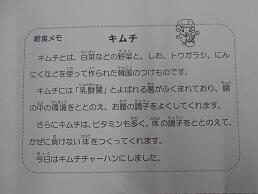 給食メモ
キムチ
キムチとは、白菜などの野菜と、しお、トウガラシ、にん
にくなどを使って作られた韓国のつけものです。
キムチには「乳酸菌」とよばれる菌がふくまれており、腸
の中の環境をととのえ、お腹の調子をよくしてくれます。
さらにキムチは、ビタミンも多く、体の調子をととのえて、
かぜに負けない体をつくってくれます。
今日はキムチチャーハンにしました。